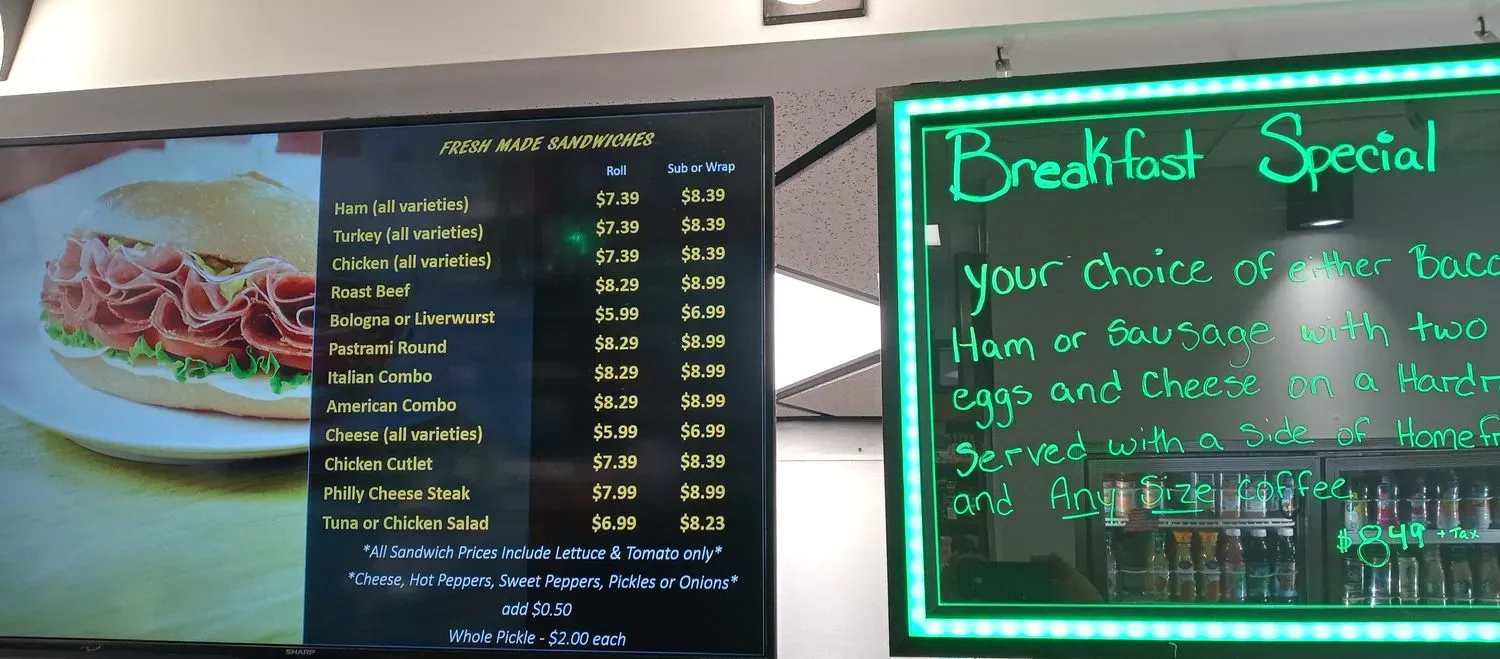 FRESH MADE SANDWICHES
Roll Sub or Wrap
Ham (all varieties) $7.39 $8.39
Turkey (all varieties) $7.39 $8.39
Chicken (all varieties) $7.39 $8.39
Roast Beef $8.29 $8.99
Bologna or Liverwurst $5.99 $6.99
Pastrami Round $8.29 $8.99
Italian Combo $8.29 $8.99
American Combo $8.29 $8.99
Cheese (all varieties) $5.99 $6.99
Chicken Cutlet $7.39 $8.39
Philly Cheese Steak $7.99 $8.99
Tuna or Chicken Salad $6.99 $8.23
*All Sandwich Prices Include Lettuce & Tomato only*
*Cheese, Hot Peppers, Sweet Peppers, Pickles or Onions*
add $0.50
Whole Pickle - $2.00 each
SHARP
Breakfast Special
your choice of either Baco
Ham or Sausage with two
eggs and Cheese on a Hardr
Served with a Side of Homefr
and Any Size coffee
$849 + Tax